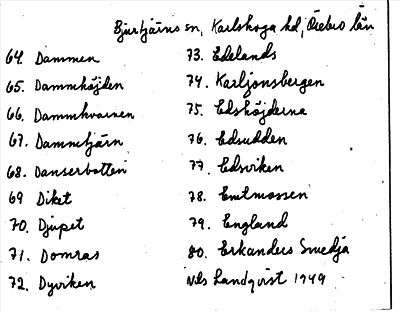 Bjurtjärns sn, Karlskoga hd, Örebro län
64. Dammen
65. Dammhöjden
66. Dammkvarnen
67. Dammtjärn
68. Danserbotten
69 Diket
70. Djupet
71. Domras
72. Dyviken
73. Edelands
74. Karljonsbergen
75. Edshöjderna
76. Edsudden
77. Edsviken
78. Emtmossen
79. England
80. Erkanders Smedja
Nils Landqvist 1949